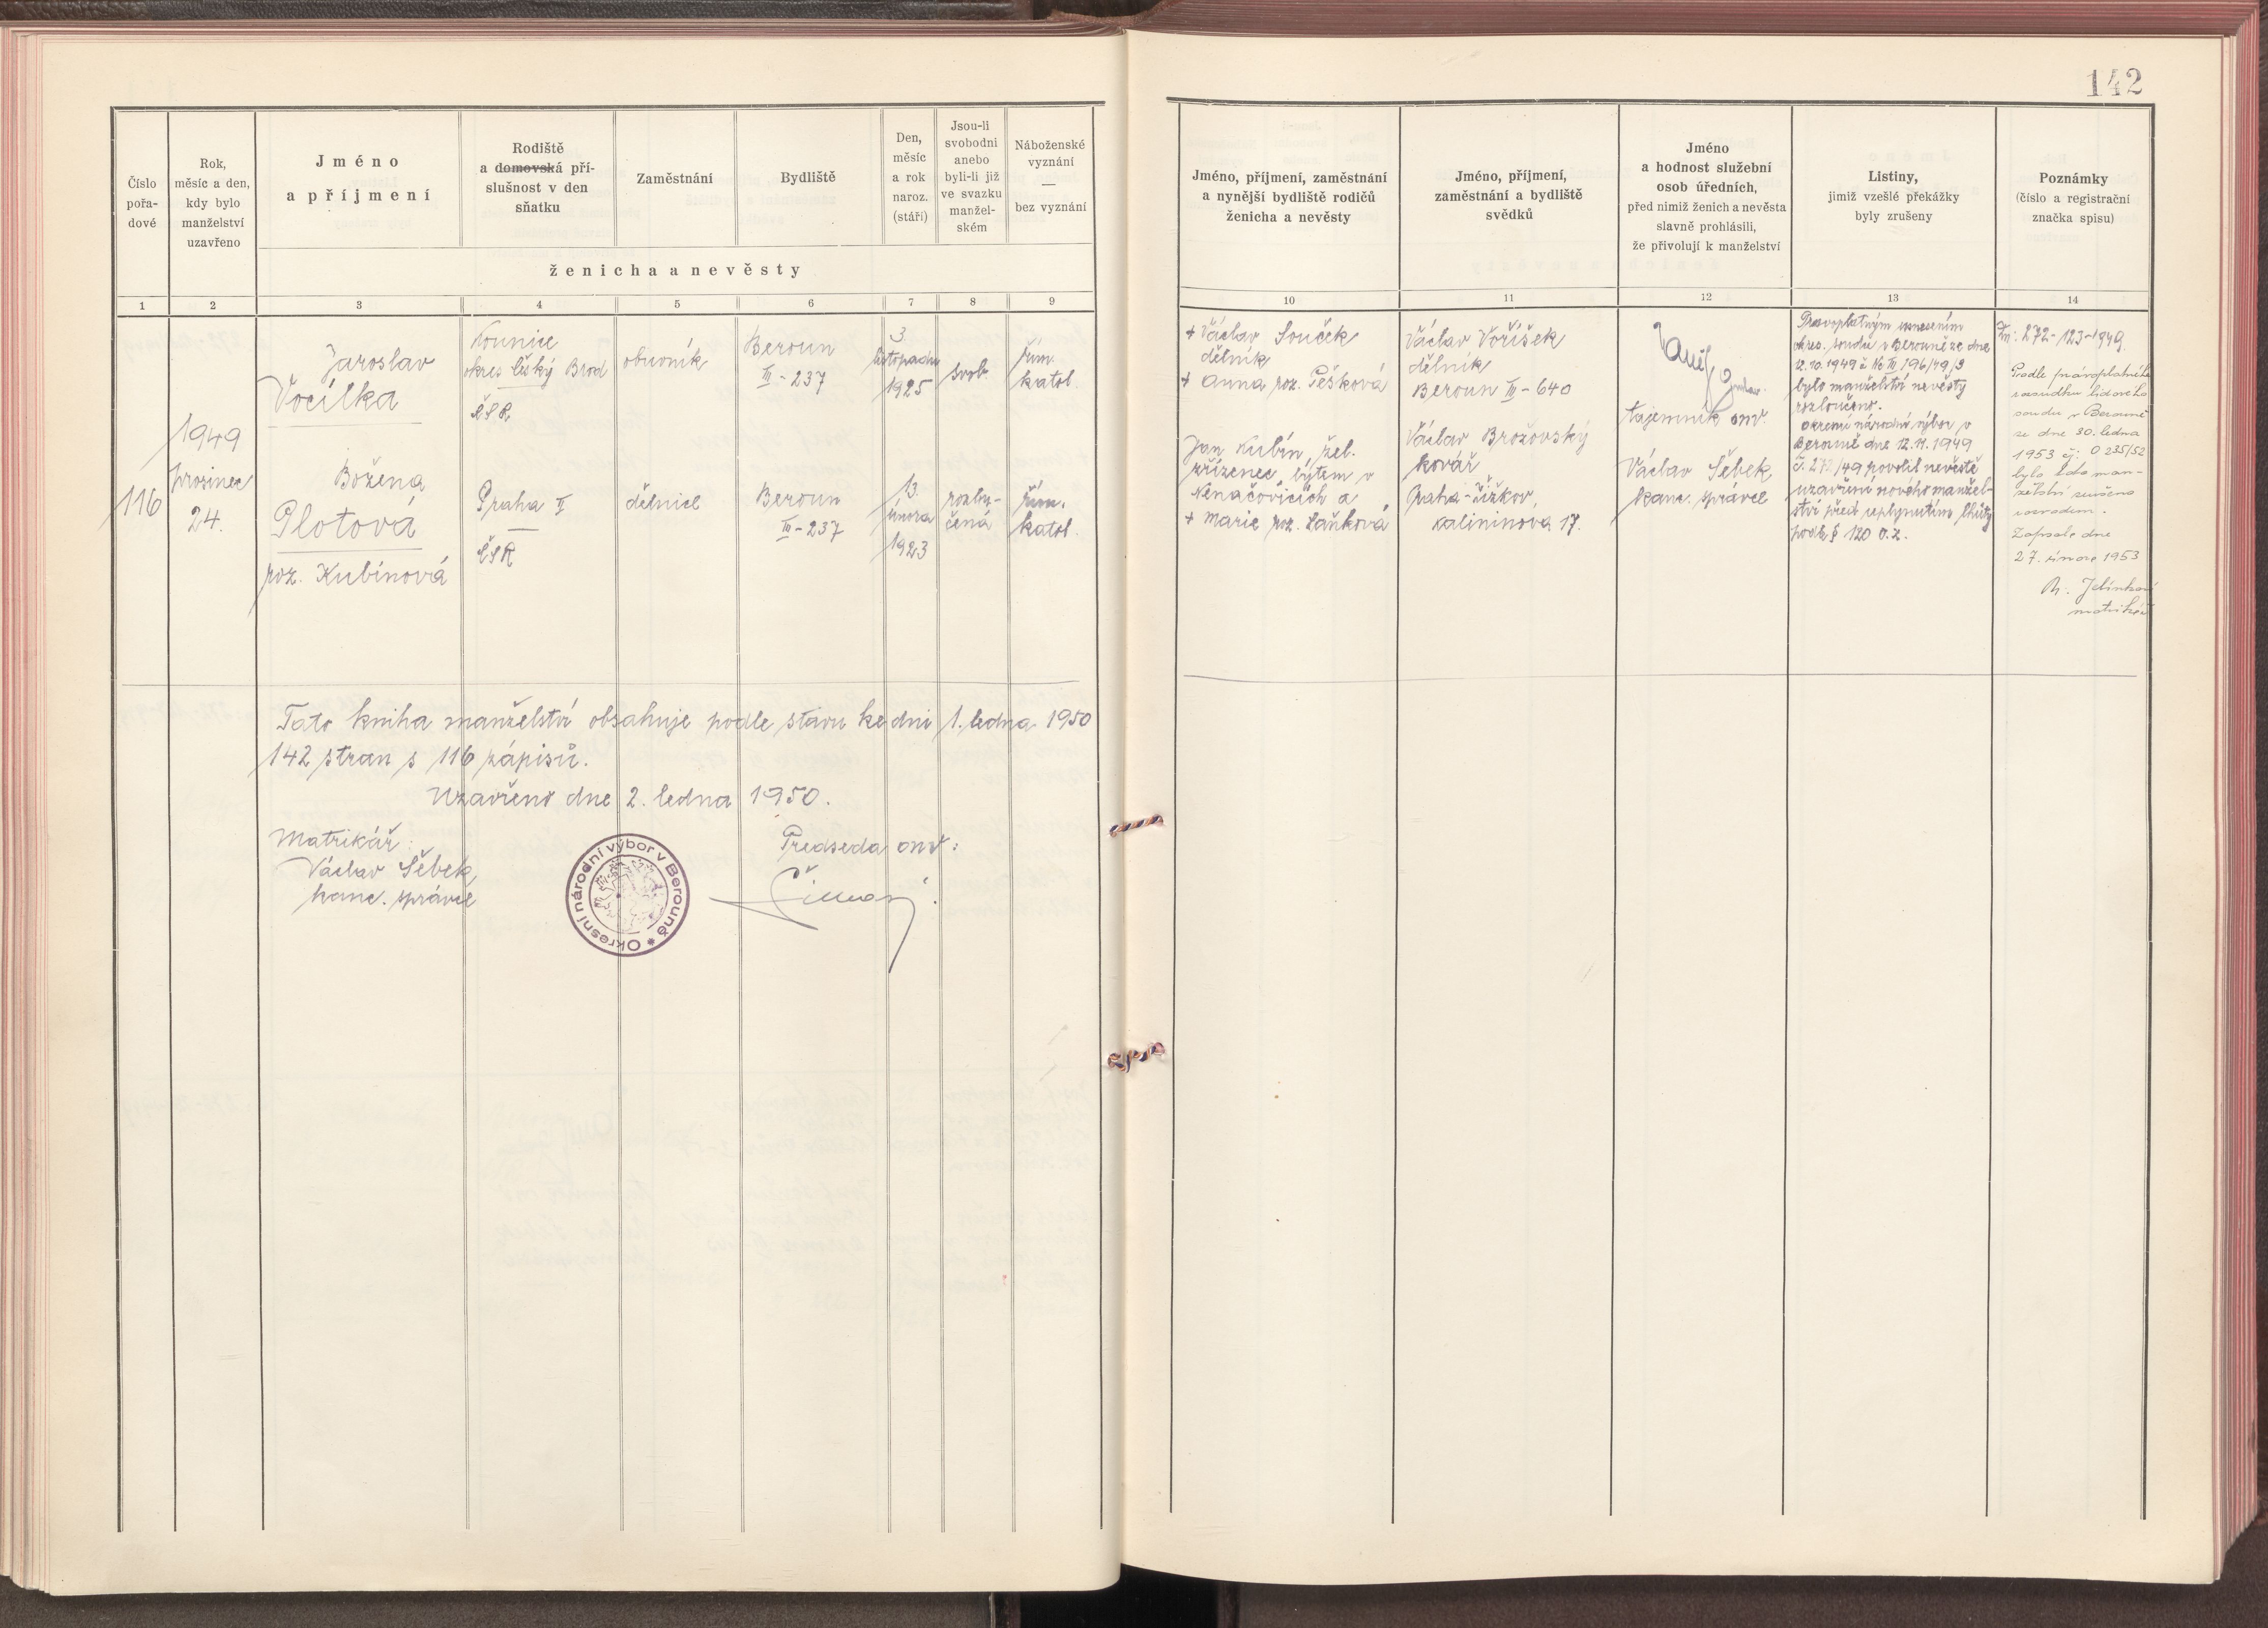 142
Číslo
pořa-
dové
Rok,
měsíc a den,
kdy bylo
manželství
uzavřeno
Jméno
a příjmení
Rodiště
a domovská pří-
slušnost v den
sňatku
Zaměstnání
Bydliště
Den,
měsíc
a rok
naroz.
(stáří)
Jsou-li
svobodni
anebo
byli-li již
ve svazku
manžel-
ském
Náboženské
vyznání
—
bez vyznání
ženicha a nevěsty
1 2 3 4 5 6 7 8 9
Jméno, příjmení, zaměstnání
a nynější bydliště rodičů
ženicha a nevěsty
Jméno, příjmení,
zaměstnání a bydliště
svědků
Jméno
a hodnost služební
osob úředních,
před nimiž ženich a nevěsta
slavně prohlásili,
že přivolují k manželství
Listiny,
jimiž vzešlé překážky
byly zrušeny
Poznámky
(číslo a registrační
značka spisu)
10 11 12 13 14
116
1949
prosinec
24.
Jaroslav
Vocílka
Kounice
okres Český Brod
ČSR
obuvník
Beroun
III - 237
3.
listopadu
1925
svob.
řím.
katol.
Božena
Plotová
roz. Kubínová
Praha II
—
ČSR
dělnice
Beroun
III - 237
13.
února
1923
rozlu-
čená
řím.
katol.
+ Václav Souček
dělník
+ Anna roz. Pešková
Jan Kubín, žel.
zřízenec, bytem v
Nenačovicích a
+ Marie roz. Laňková
Václav Voříšek
dělník
Beroun III - 640
Václav Brožovský
kovář
Praha - Žižkov,
Kalininova 17.
tajemník onv.
Václav Sěbek
kanc. správce
Pravoplatným usnesením
okres. soudu v Berouně ze dne
12.10.1949 č. Nc III 196/49/3
bylo manželství nevěsty
rozloučeno.
Okresní národní výbor v
Berouně dne 12.11.1949
č. 272/49 povolil nevěstě
uzavření nového manžel-
ství před uplynutím lhůty
podle § 120 o.z.
Zn: 272 - 123 - 1949.
Podle pravoplatného
rozsudku lidového
soudu v Berouně
ze dne 30. ledna
1953 čj: O 235/52
bylo toto man-
želství zrušeno
rozvodem.
Zapsáno dne
27. února 1953
Jelínková
matrikář
Tato kniha manželství obsahuje podle stavu ke dni 1. ledna 1950
142 stran s 116 zápisů.
Uzavřeno dne 2. ledna 1950.
Matrikář:
Václav Sěbek,
kanc. správce
Předseda onv:
Okresní národní výbor v Berouně *